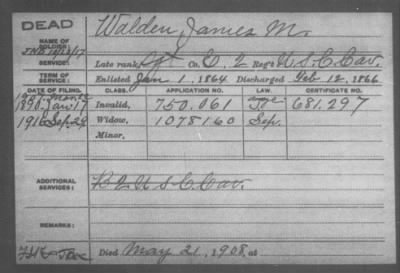 DEAD
NAME OF SOLDIER: Walden, James M.
SERVICE: Late rank, Sgt Co. E, 2 Reg't U.S.C. Cav.
TERM OF SERVICE: Enlisted Jan 1, 1864 Discharged Feb 12, 1866
DATE OF FILING. CLASS. APPLICATION NO. LAW. CERTIFICATE NO.
1890 Jan 17 Invalid, 750.061 681.297
1916 Sep. 29 Widow, 1078160 Sep.
Minor,
ADDITIONAL SERVICES: U S C Cav.
REMARKS:
Died May 21, 1908, at